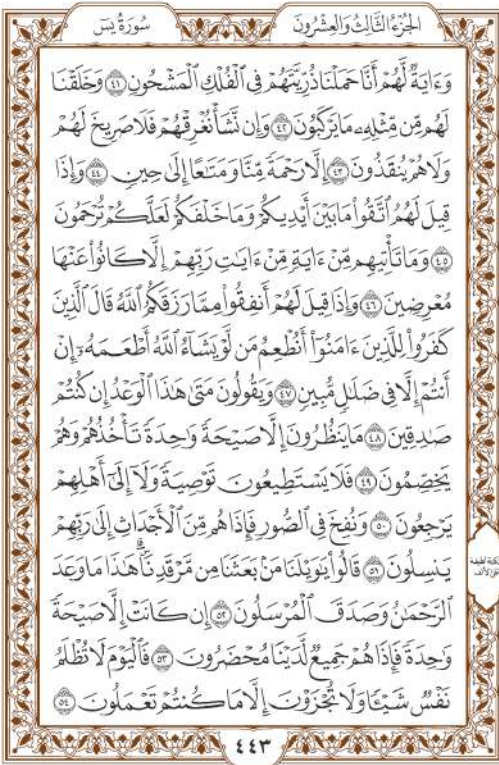 الجُزْءُ الثَّالِثُ وَالعِشْرُونَ
سُورَةُ يسٓ
وَءَايَةٌ لَّهُمْ أَنَّا حَمَلْنَا ذُرِّيَّتَهُمْ فِي ٱلْفُلْكِ ٱلْمَشْحُونِ ٤١ وَخَلَقْنَا
لَهُم مِّن مِّثْلِهِۦ مَا يَرْكَبُونَ ٤٢ وَإِن نَّشَأْ نُغْرِقْهُمْ فَلَا صَرِيخَ لَهُمْ
وَلَا هُمْ يُنقَذُونَ ٤٣ إِلَّا رَحْمَةً مِّنَّا وَمَتَٰعًا إِلَىٰ حِينٍ ٤٤ وَإِذَا
قِيلَ لَهُمُ ٱتَّقُوا۟ مَا بَيْنَ أَيْدِيكُمْ وَمَا خَلْفَكُمْ لَعَلَّكُمْ تُرْحَمُونَ
٤٥ وَمَا تَأْتِيهِم مِّنْ ءَايَةٍ مِّنْ ءَايَٰتِ رَبِّهِمْ إِلَّا كَانُوا۟ عَنْهَا
مُعْرِضِينَ ٤٦ وَإِذَا قِيلَ لَهُمْ أَنفِقُوا۟ مِمَّا رَزَقَكُمُ ٱللَّهُ قَالَ ٱلَّذِينَ
كَفَرُوا۟ لِلَّذِينَ ءَامَنُوٓا۟ أَنُطْعِمُ مَن لَّوْ يَشَآءُ ٱللَّهُ أَطْعَمَهُۥٓ إِنْ
أَنتُمْ إِلَّا فِي ضَلَٰلٍ مُّبِينٍ ٤٧ وَيَقُولُونَ مَتَىٰ هَٰذَا ٱلْوَعْدُ إِن كُنتُمْ
صَٰدِقِينَ ٤٨ مَا يَنظُرُونَ إِلَّا صَيْحَةً وَٰحِدَةً تَأْخُذُهُمْ وَهُمْ
يَخِصِّمُونَ ٤٩ فَلَا يَسْتَطِيعُونَ تَوْصِيَةً وَلَآ إِلَىٰٓ أَهْلِهِمْ
يَرْجِعُونَ ٥٠ وَنُفِخَ فِي ٱلصُّورِ فَإِذَا هُم مِّنَ ٱلْأَجْدَاثِ إِلَىٰ رَبِّهِمْ
يَنسِلُونَ ٥١ قَالُوا۟ يَٰوَيْلَنَا مَنۢ بَعَثَنَا مِن مَّرْقَدِنَا ۜ ۗ هَٰذَا مَا وَعَدَ
ٱلرَّحْمَٰنُ وَصَدَقَ ٱلْمُرْسَلُونَ ٥٢ إِن كَانَتْ إِلَّا صَيْحَةً
وَٰحِدَةً فَإِذَا هُمْ جَمِيعٌ لَّدَيْنَا مُحْضَرُونَ ٥٣ فَٱلْيَوْمَ لَا تُظْلَمُ
نَفْسٌ شَيْـًٔا وَلَا تُجْزَوْنَ إِلَّا مَا كُنتُمْ تَعْمَلُونَ ٥٤
٤٤٣